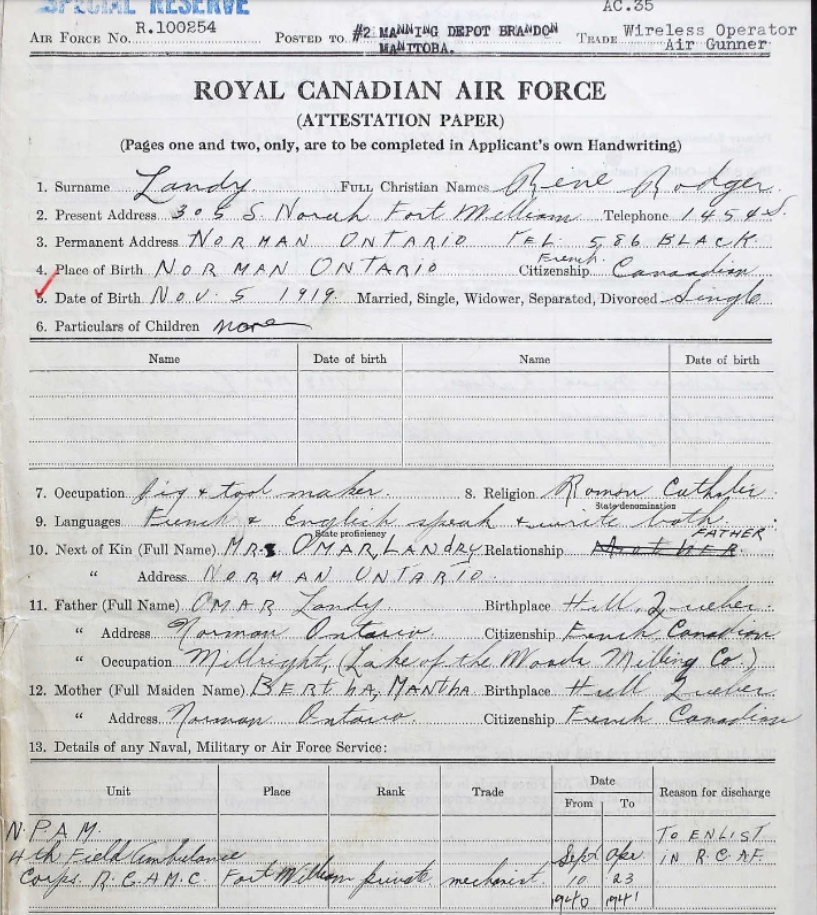 SPECIAL RESERVE
AC.35
AIR FORCE NO. R.100254 POSTED TO #2 MANNING DEPOT BRANDON MANITOBA. TRADE Wireless Operator Air Gunner
ROYAL CANADIAN AIR FORCE
(ATTESTATION PAPER)
(Pages one and two, only, are to be completed in Applicant's own Handwriting)
1. Surname Landy FULL Christian Names Rene Rodger
2. Present Address 305 S. Norah Fort William Telephone 1454 S.
3. Permanent Address NORMAN ONTARIO TEL. 586 BLACK
4. Place of Birth NORMAN ONTARIO Citizenship French Canadian
5. Date of Birth NOV. 5 1919. Married, Single, Widower, Separated, Divorced Single
6. Particulars of Children none
Name Date of birth Name Date of birth
7. Occupation Jig & tool maker. 8. Religion Roman Catholic
State denomination
9. Languages French & English speak & write both.
State proficiency
FATHER
10. Next of Kin (Full Name) MR. OMAR, LANDRY Relationship MOTHER
" Address NORMAN ONTARIO.
11. Father (Full Name) OMAR Landy. Birthplace Hull, Quebec.
" Address Norman Ontario. Citizenship French Canadian
" Occupation Millright, (Lake of the Woods Milling Co.)
12. Mother (Full Maiden Name) BERTHA, MANTHA Birthplace Hull Quebec
" Address Norman Ontario. Citizenship French Canadian
13. Details of any Naval, Military or Air Force Service:
Unit Place Rank Trade Date From To Reason for discharge
N.P.A.M. TO ENLIST
4th Field Ambulance Sept Apr IN R.C.A.F.
Corps. R.C.A.M.C. Fort William private mechanist. 10 23
1940 1941